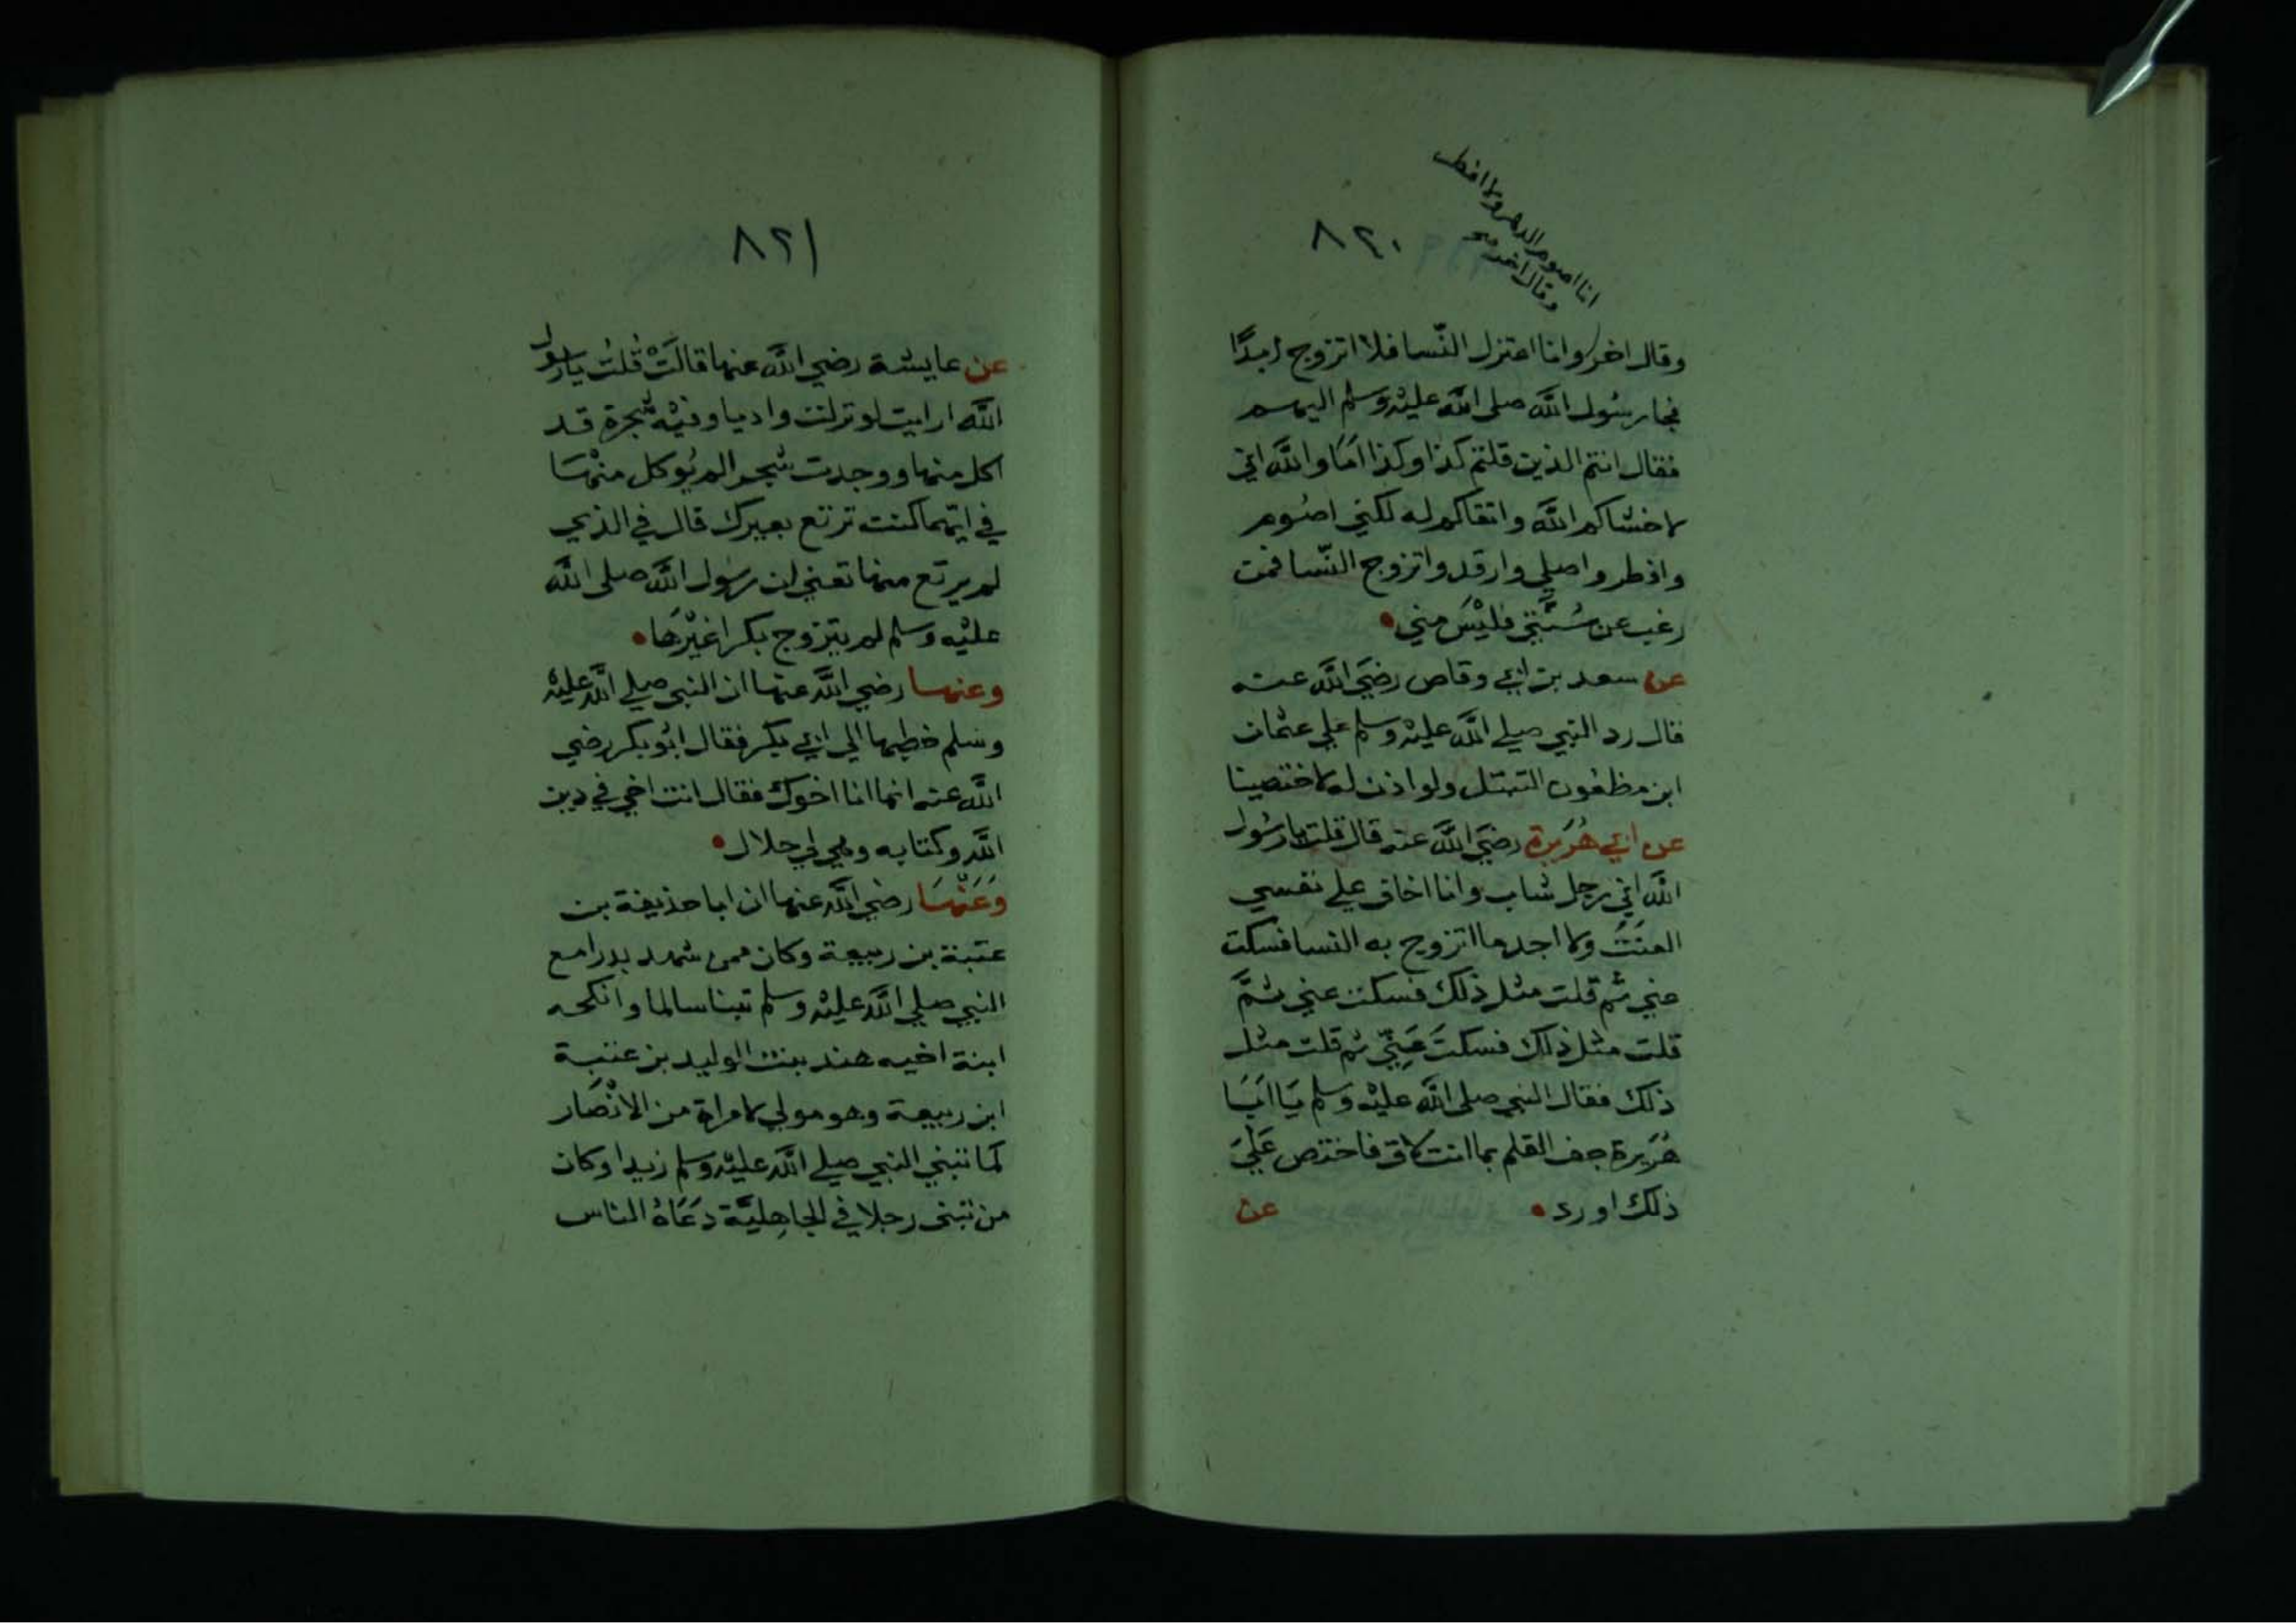 ٨٢٠
انا اصوم الدهر ولا افطر
وقال اخر صح
وقال اخر وانا اعتزل النّسا فلا اتزوج ابدًا
فجا رسُول اللَّه صلى اللَّه عليْه وسلم اليهم
فقال انتم الذين قلتم كذا وكذا امَا واللَّه اني
لاخشاكم اللَّه واتقاكم له لكني اصُوم
وافطر واصلي وارقد واتزوج النّسا فمن
رغب عن سُنَّتي فليْسَ مني
عن سعد بن ابي وقاص رضَي اللَّه عنه
قال رد النبي صلي اللَّه عليْه وسلم علي عثمان
ابن مظعون التبتل ولو اذن له لاختصينا
عن ابي هُرَيرة رضَي اللَّه عنه قال قلت يا رسُول
اللَّه اني رجل شاب وانا اخاف علي نفسي
العنَتَ ولا اجد ما اتزوج به النسا فسكت
عني ثم قلت مثل ذلك فسكت عني ثمَّ
قلت مثل ذلك فسكتَ عَنِّي ثم قلت مثل
ذلك فقال النبي صلى اللَّه عليْه وسلم يَا ابَا
هُرَيرة جف القلم بما انت لاق فاختص عَلَيَ
ذلك او رد
عن
٨٢١
عن عايشة رضي اللَّه عنها قالَتْ قُلتُ يا رسول
اللَّه ارايت لو نزلت واديا وفيْه شجرة قد
اكل منها ووجدت شجرا لم يُوكل منْهَا
في ايّهما كنت ترتع بعيرك قال في الذي
لم يرتع منها تعني ان رسُول اللَّه صلى اللَّه
عليْه وسلم لم يتزوج بكرا غيْرهَا
وعنها رضي اللَّه عنها ان النبي صلي اللَّه عليْه
وسَلم خطبها الي ابي بكر فقال ابُو بكر رضي
اللَّه عنه انما انا اخوك فقال انت اخي في دين
اللَّه وكتابه وهي لي حلال
وَعَنْهَا رضي اللَّه عنها ان ابا حذيفة بن
عتبة بن ربيعة وكان ممن شهد بدرا مع
النبي صلي اللَّه عليْه وسلم تبنا سالما وانكحه
ابنة اخيه هند بنت الوليد بن عتبة
ابن ربيعة وهو مولي لامراة من الانْصَار
كما تبني النبي صلي اللَّه عليْه وسلم زيدا وكان
من تبنى رجلا في الجاهِليَّة دَعَاهُ الناس